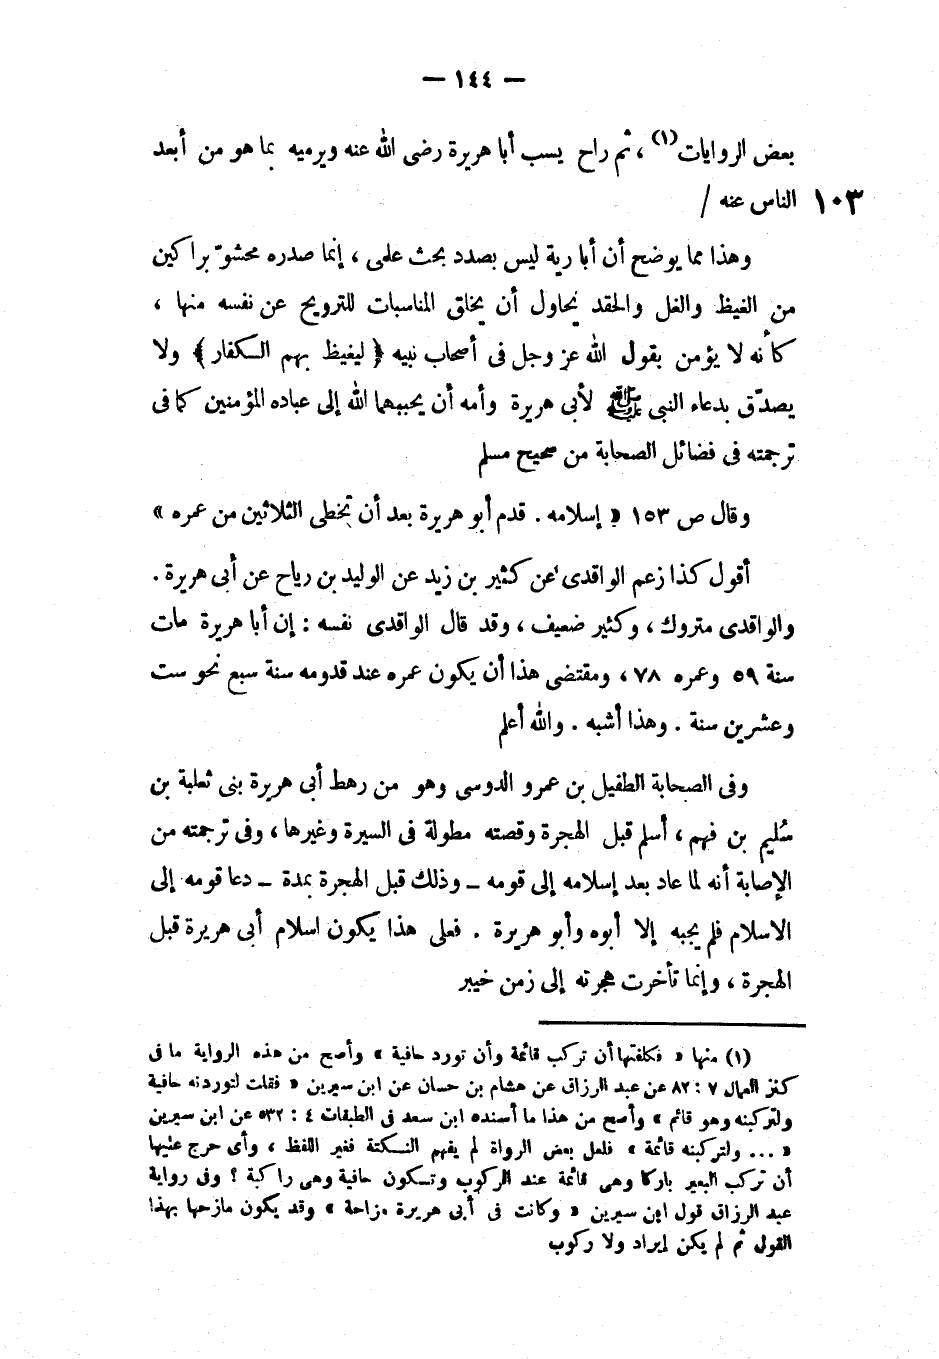 — ١٤٤ —
بعض الروايات(١) ، ثم راح يسب أبا هريرة رضى الله عنه ويرميه بما هو من أبعد
١٠٣ الناس عنه /
وهذا مما يوضح أن أبا رية ليس بصدد بحث علمى ، إنما صدره محشوّ براكين
من الغيظ والغل والحقد يحاول أن يخلق المناسبات للترويح عن نفسه منها ،
كأنه لا يؤمن بقول الله عز وجل فى أصحاب نبيه ﴿ ليغيظ بهم الكفار ﴾ ولا
يصدّق بدعاء النبى ﷺ لأبى هريرة وأمه أن يحببهما الله إلى عباده المؤمنين كما فى
ترجمته فى فضائل الصحابة من صحيح مسلم
وقال ص ١٥٣ « إسلامه . قدم أبو هريرة بعد أن تخطى الثلاثين من عمره »
أقول كذا زعم الواقدى عن كثير بن زيد عن الوليد بن رباح عن أبى هريرة .
والواقدى متروك ، وكثير ضعيف ، وقد قال الواقدى نفسه : إن أبا هريرة مات
سنة ٥٩ وعمره ٧٨ ، ومقتضى هذا أن يكون عمره عند قدومه سنة سبع نحو ست
وعشرين سنة . وهذا أشبه . والله أعلم
وفى الصحابة الطفيل بن عمرو الدوسى وهو من رهط أبى هريرة بنى ثعلبة بن
سُليم بن فهم ، أسلم قبل الهجرة وقصته مطولة فى السيرة وغيرها ، وفى ترجمته من
الإصابة أنه لما عاد بعد إسلامه إلى قومه – وذلك قبل الهجرة بمدة – دعا قومه إلى
الاسلام فلم يجبه إلا أبوه وأبو هريرة . فعلى هذا يكون اسلام أبى هريرة قبل
الهجرة ، وإنما تأخرت هجرته إلى زمن خيبر
(١) منها « فكلفتها أن تركب قائمة وأن تورد حافية » وأصح من هذه الرواية ما فى
كنز العمال ٧ : ٨٢ عن عبد الرزاق عن هشام بن حسان عن ابن سيرين « فقلت لتوردنه حافية
ولتركبنه وهو قائم » وأصح من هذا ما أسنده ابن سعد فى الطبقات ٤ : ٥٣٢ عن ابن سيرين
« ... ولتركبنه قائمة » فلعل بعض الرواة لم يفهم النكتة فغير اللفظ ، وأى حرج عليها
أن تركب البعير باركا وهى قائمة عند الركوب وتكون حافية وهى راكبة ؟ وفى رواية
عبد الرزاق قول ابن سيرين « وكانت فى أبى هريرة مزاحة » وقد يكون مازحها بهذا
القول ثم لم يكن إيراد ولا ركوب